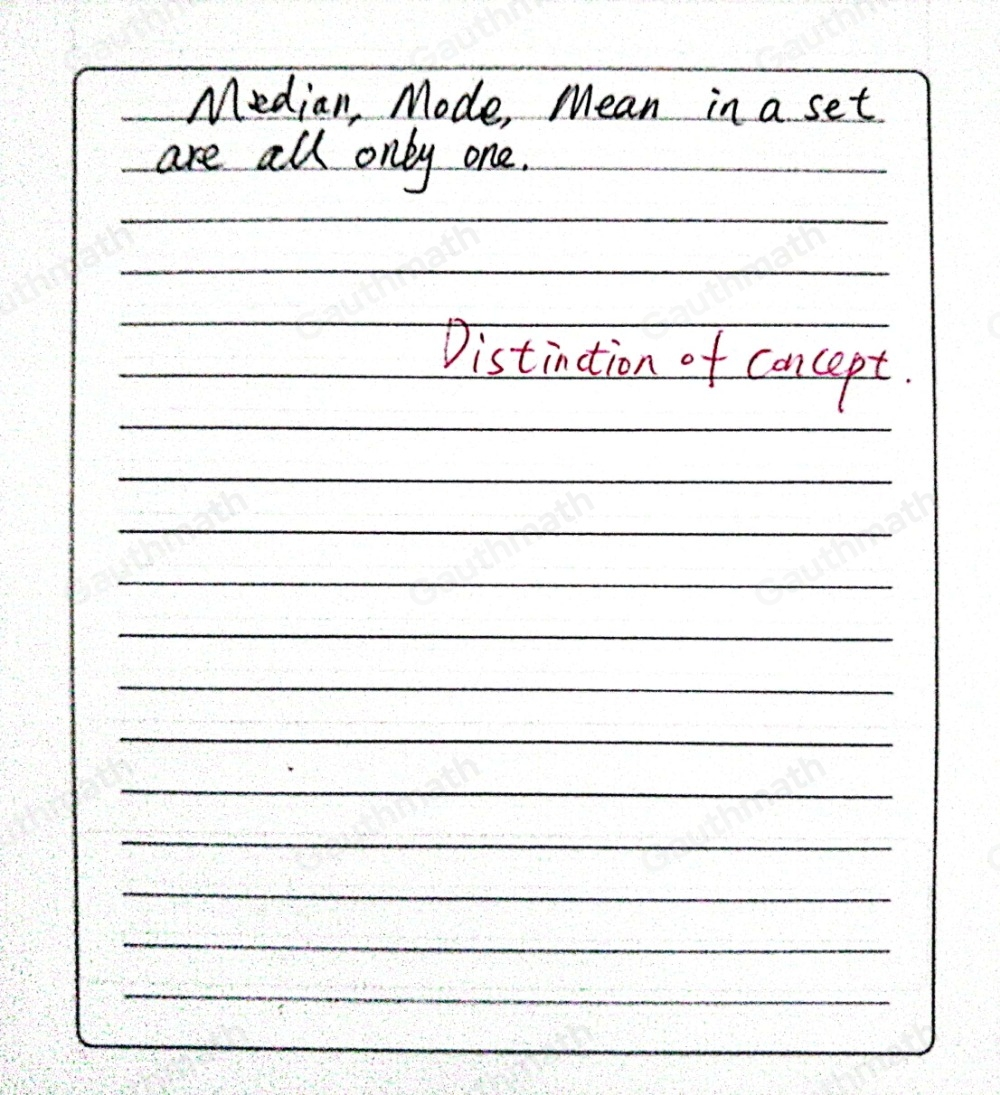 Median, Mode, Mean in a set
are all only one.
Distinction of concept.